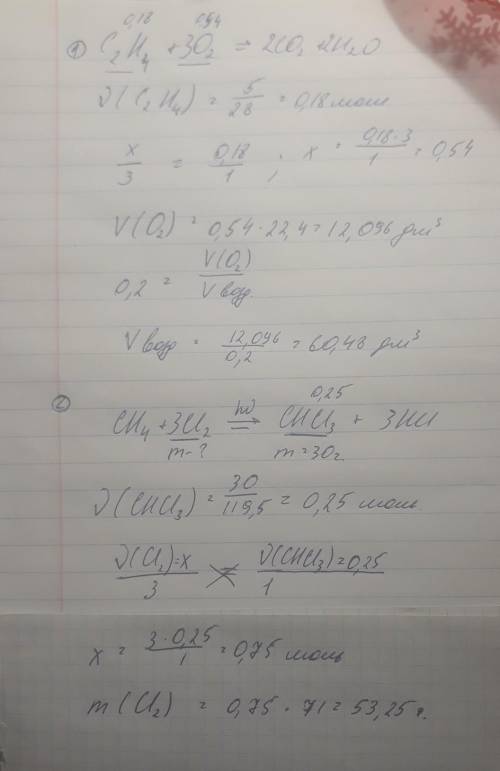 0,18 0,54
① C₂H₄ + 3O₂ = 2CO₂ + 2H₂O
ν(C₂H₄) = 5/28 = 0,18 моль
x/3 = 0,18/1 ; x = 0,18·3/1 = 0,54
V(O₂) = 0,54·22,4 = 12,096 дм³
0,2 = V(O₂)/V возд.
V возд = 12,096/0,2 = 60,48 дм³
0,25
② CH₄ + 3Cl₂ hν = CHCl₃ + 3HCl
m-? m=30г.
ν(CHCl₃) = 30/119,5 = 0,25 моль
ν(Cl₂)=x/3 = ν(CHCl₃)=0,25/1
x = 3·0,25/1 = 0,75 моль
m(Cl₂) = 0,75·71 = 53,25 г.